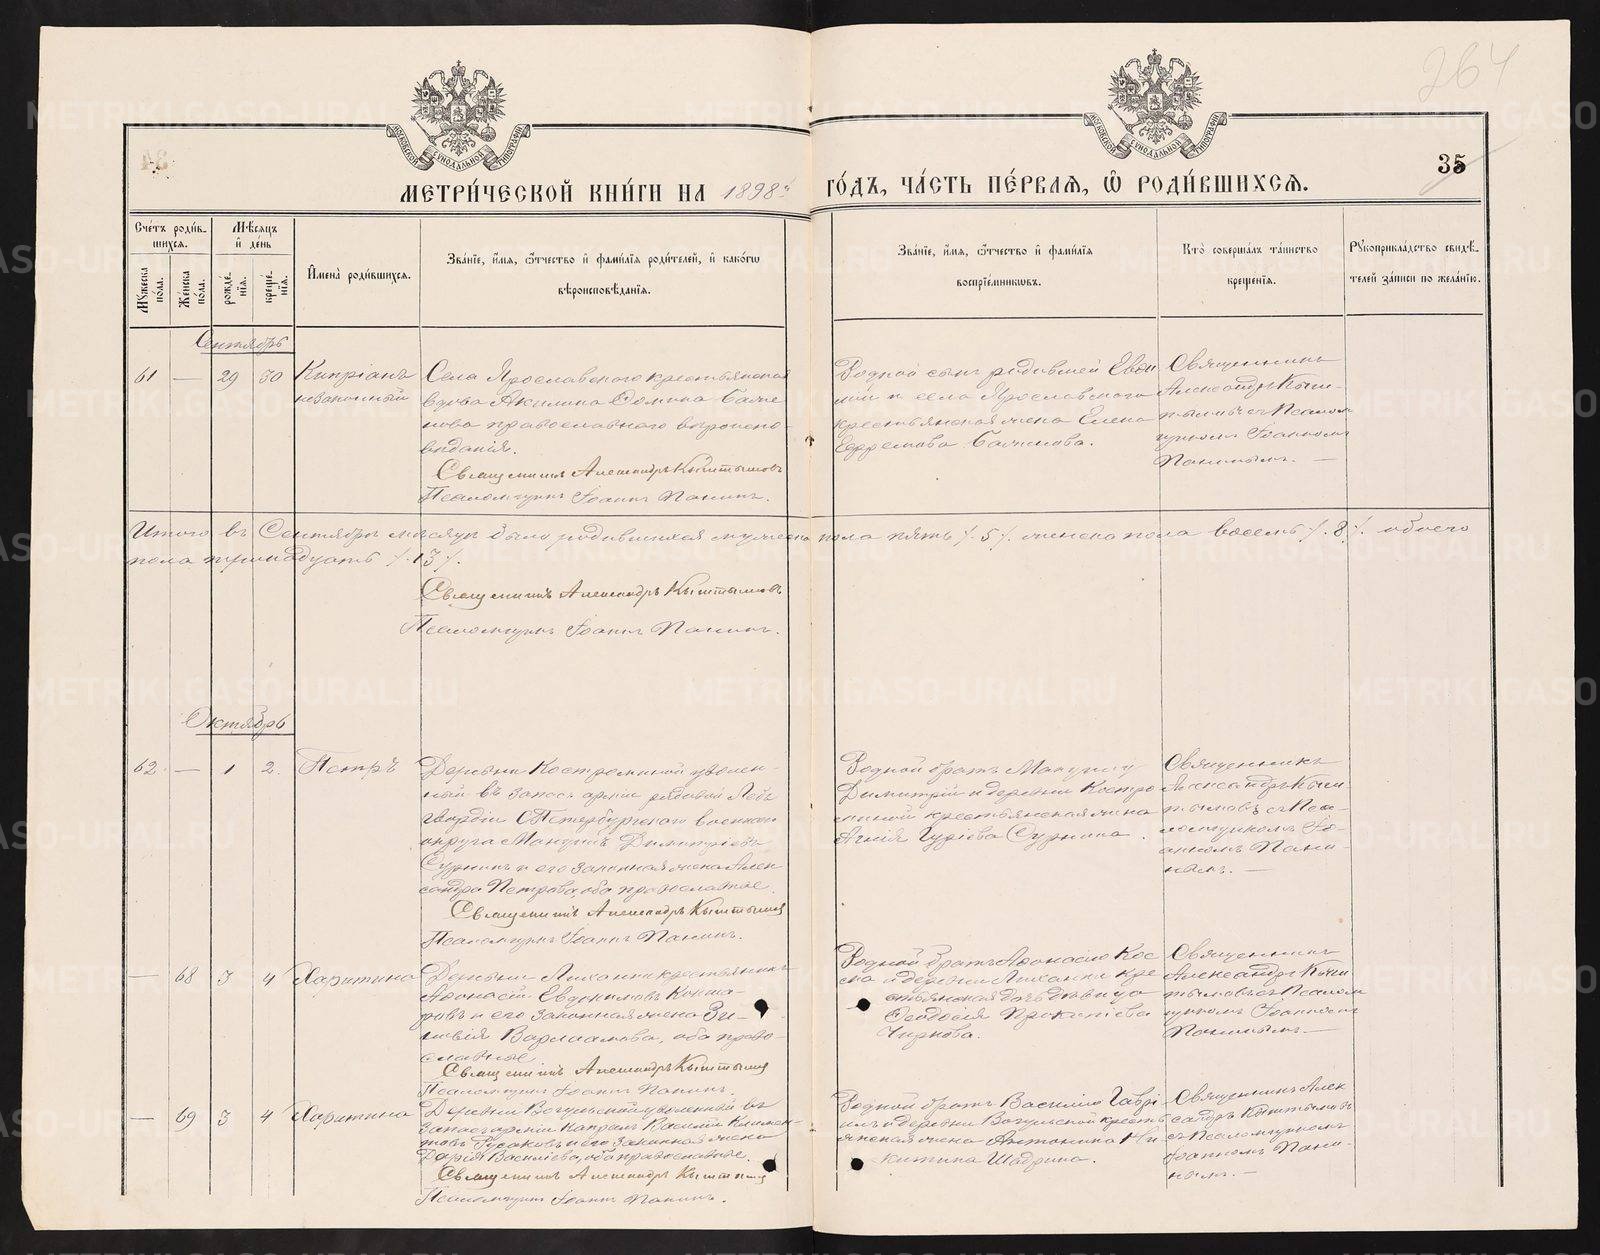 264
35
МЕТРИЧЕСКОЙ КНИГИ НА 1898й ГОДЪ, ЧАСТЬ ПЕРВАЯ, Ѡ РОДИВШИХСЯ.
Счетъ родившихся.
Мужеска пола.
Женска пола.
Мѣсяцъ и день
рожденія.
крещенія.
Имена родившихся.
Званіе, имя, отчество и фамилія родителей, и какогω вѣроисповѣданія.
Званіе, имя, отчество и фамилія воспріемниковъ.
Кто совершалъ таинство крещенія.
Рукоприкладство свидѣтелей записи по желанію.
Сентябрь
61 — 29 30 Кипріанъ
незаконный
Села Ярославскаго крестьянская
вдова Акилина Фомина
православнаго вѣроиспо-
вѣданія.
Священникъ Александръ Кыштымовъ
Псаломщикъ Іоаннъ Панинъ.
Родной сынъ родившей
и села Ярославскаго
крестьянская жена Елена
Ефремова
Священникъ
Александръ Кыш-
тымовъ съ Псалом
щикомъ Іоанномъ
Панинымъ. —
Итого въ Сентябрѣ мѣсяцѣ было родившихся мужеска пола пять /. 5 /. женска пола восемь /. 8 /. обоего
пола тринадцать /. 13 /.
Священникъ Александръ Кыштымовъ
Псаломщикъ Іоаннъ Панинъ.
Октябрь
62. — 1 2. Петръ
Деревни Костроминой уволен-
ный въ запасъ арміи рядовой Лейбъ
гвардіи СПетербургскаго военнаго
округа Димитріевъ
и его законная жена Алек
сандра Петрова, оба православные.
Священникъ Александръ Кыштымовъ
Псаломщикъ Іоаннъ Панинъ.
Родной братъ
Димитрій и деревни Костро
миной крестьянская жена
Агнія Гурієва
Священникъ
Александръ Кыш
тымовъ съ Пса-
ломщикомъ Іо-
анномъ Пани-
нымъ. —
— 68 3 4 Харитина
Деревни крестьянинъ
Афонасій Евдокимовъ
ровъ и его законная жена Зи-
новія Варлаамова, оба право-
славные
Священникъ Александръ Кыштымовъ
Псаломщикъ Іоаннъ Панинъ.
Родной братъ Афонасію
и деревни кре
стьянская дочь дѣвица
Феодосія Прокопіева
Чиркова.
Священникъ
Александръ Кыш
тымовъ съ Псалом
щикомъ Іоанномъ
Панинымъ —
— 69 3 4 Харитина
Деревни Вогульской уволенный въ
запасъ арміи Капралъ Василій Климен-
товъ Русаковъ и его законная жена
Дарія Василіева, оба православные.
Священникъ Александръ Кыштымовъ
Псаломщикъ Іоаннъ Панинъ.
Родной братъ Василію Гаврі
илъ и деревни Вогульской кресть
янская жена Антонина Ни
китина Шадрина.
Священникъ Алек
сандръ Кыштымовъ
съ Псаломщикомъ
Іоанномъ Пани-
нымъ. —
METRIKI.GASO-URAL.RU